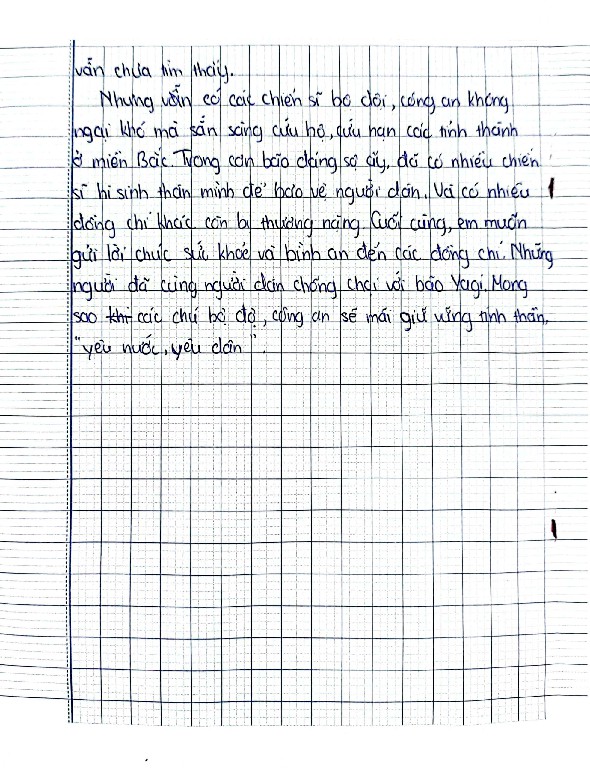 vẫn chưa tìm thấy.
Nhưng vẫn có các chiến sĩ bộ đội, công an không
ngại khó mà sẵn sàng cứu hộ, cứu nạn các tỉnh thành
ở miền Bắc. Trong cơn bão đáng sợ ấy, đã có nhiều chiến
sĩ hi sinh thân mình để bảo vệ người dân. Và có nhiều
đồng chí khác còn bị thương nặng. Cuối cùng, em muốn
gửi lời chúc sức khoẻ và bình an đến các đồng chí. Những
người đã cùng người dân chống chọi với bão Yagi. Mong
sao các chú bộ độ, công an sẽ mãi giữ vững tinh thần,
"yêu nước, yêu dân".